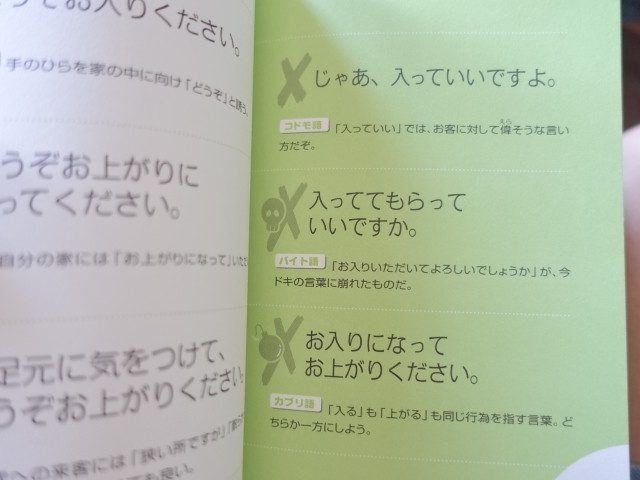 てお入りください。
手のひらを家の中に向け「どうぞ」と誘う。
うぞお上がりに
ってください。
自分の家には「お上がりになって」いただ
足元に気をつけて、
うぞお上がりください。
への来客には「狭い所ですが」
ても良い。
じゃあ、入っていいですよ。
コドモ語 「入っていい」では、お客に対して偉そうな言い
えら
方だぞ。
入っててもらって
いいですか。
バイト語 「お入りいただいてよろしいでしょうか」が、今
ドキの言葉に崩れたものだ。
お入りになって
お上がりください。
カブリ語 「入る」も「上がる」も同じ行為を指す言葉。ど
ちらか一方にしよう。